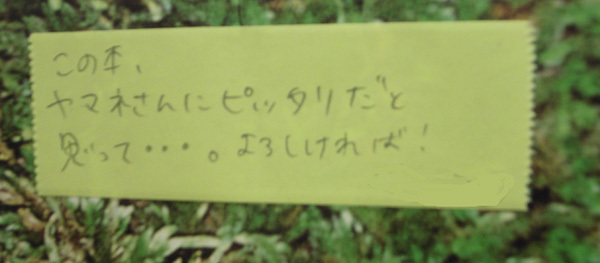 この本、
ヤマネさんにピッタリだと
思って・・・。よろしければ!